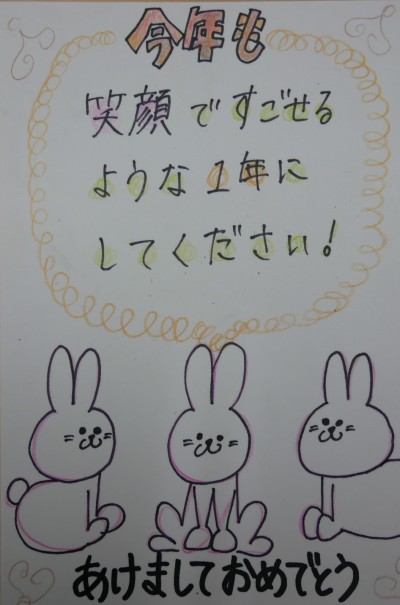 今年も
笑顔ですごせる
ような1年に
してください!
あけましておめでとう